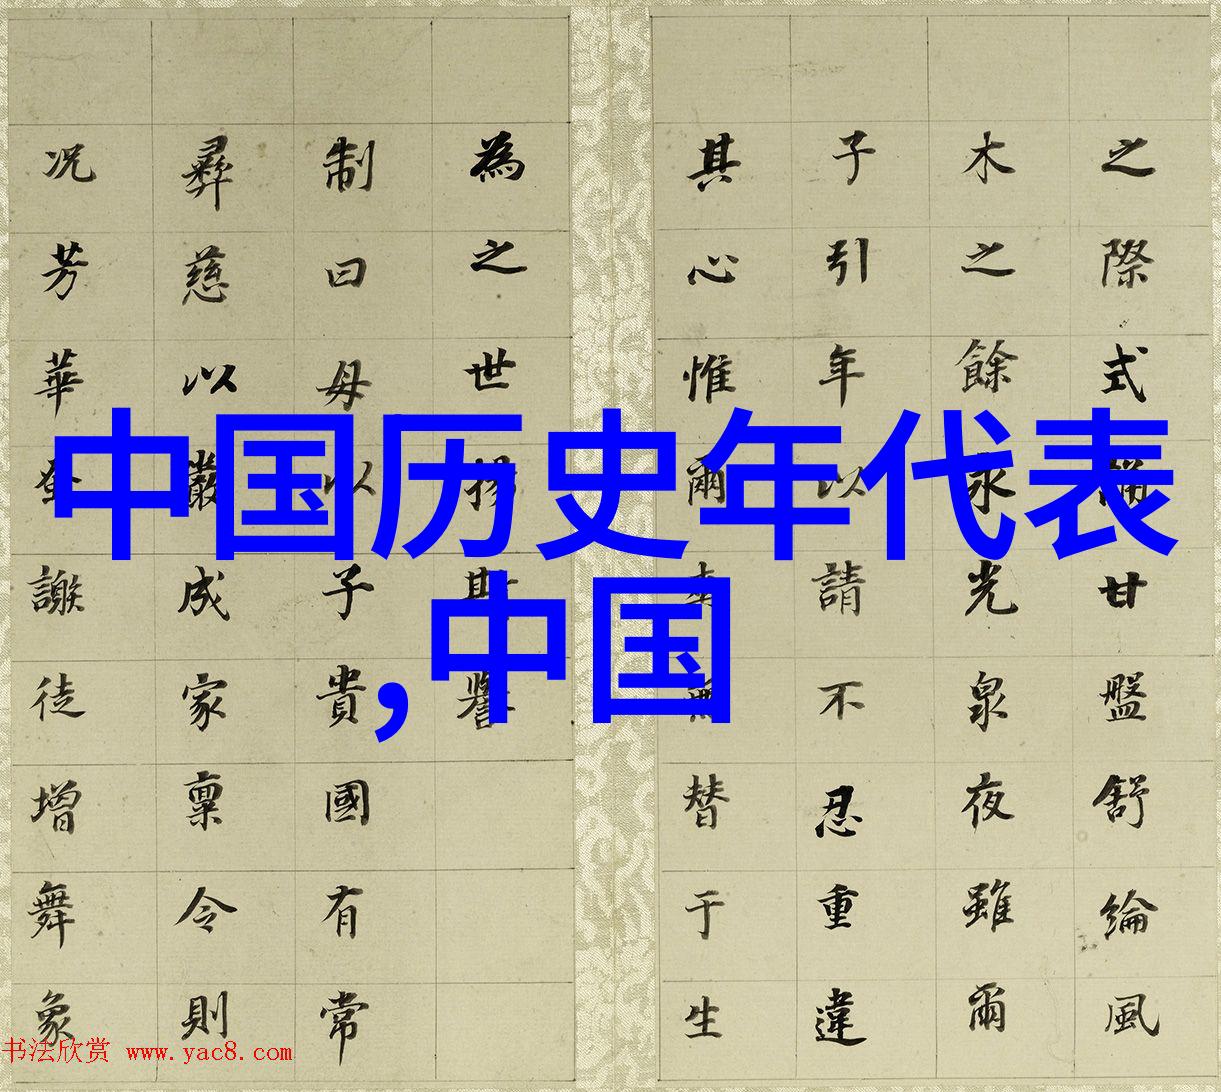 中国历史年代表
,中国
之際式甘盤舒綸風
木之餘光泉夜雖爾
子引年以請不忍重違
其心惟爾替于生
為之世揚斯譽
制曰母以子貴國有常
彝慈以成家稟令則
况芳華謝徒增舞象
书法欣赏 www.yac8.com